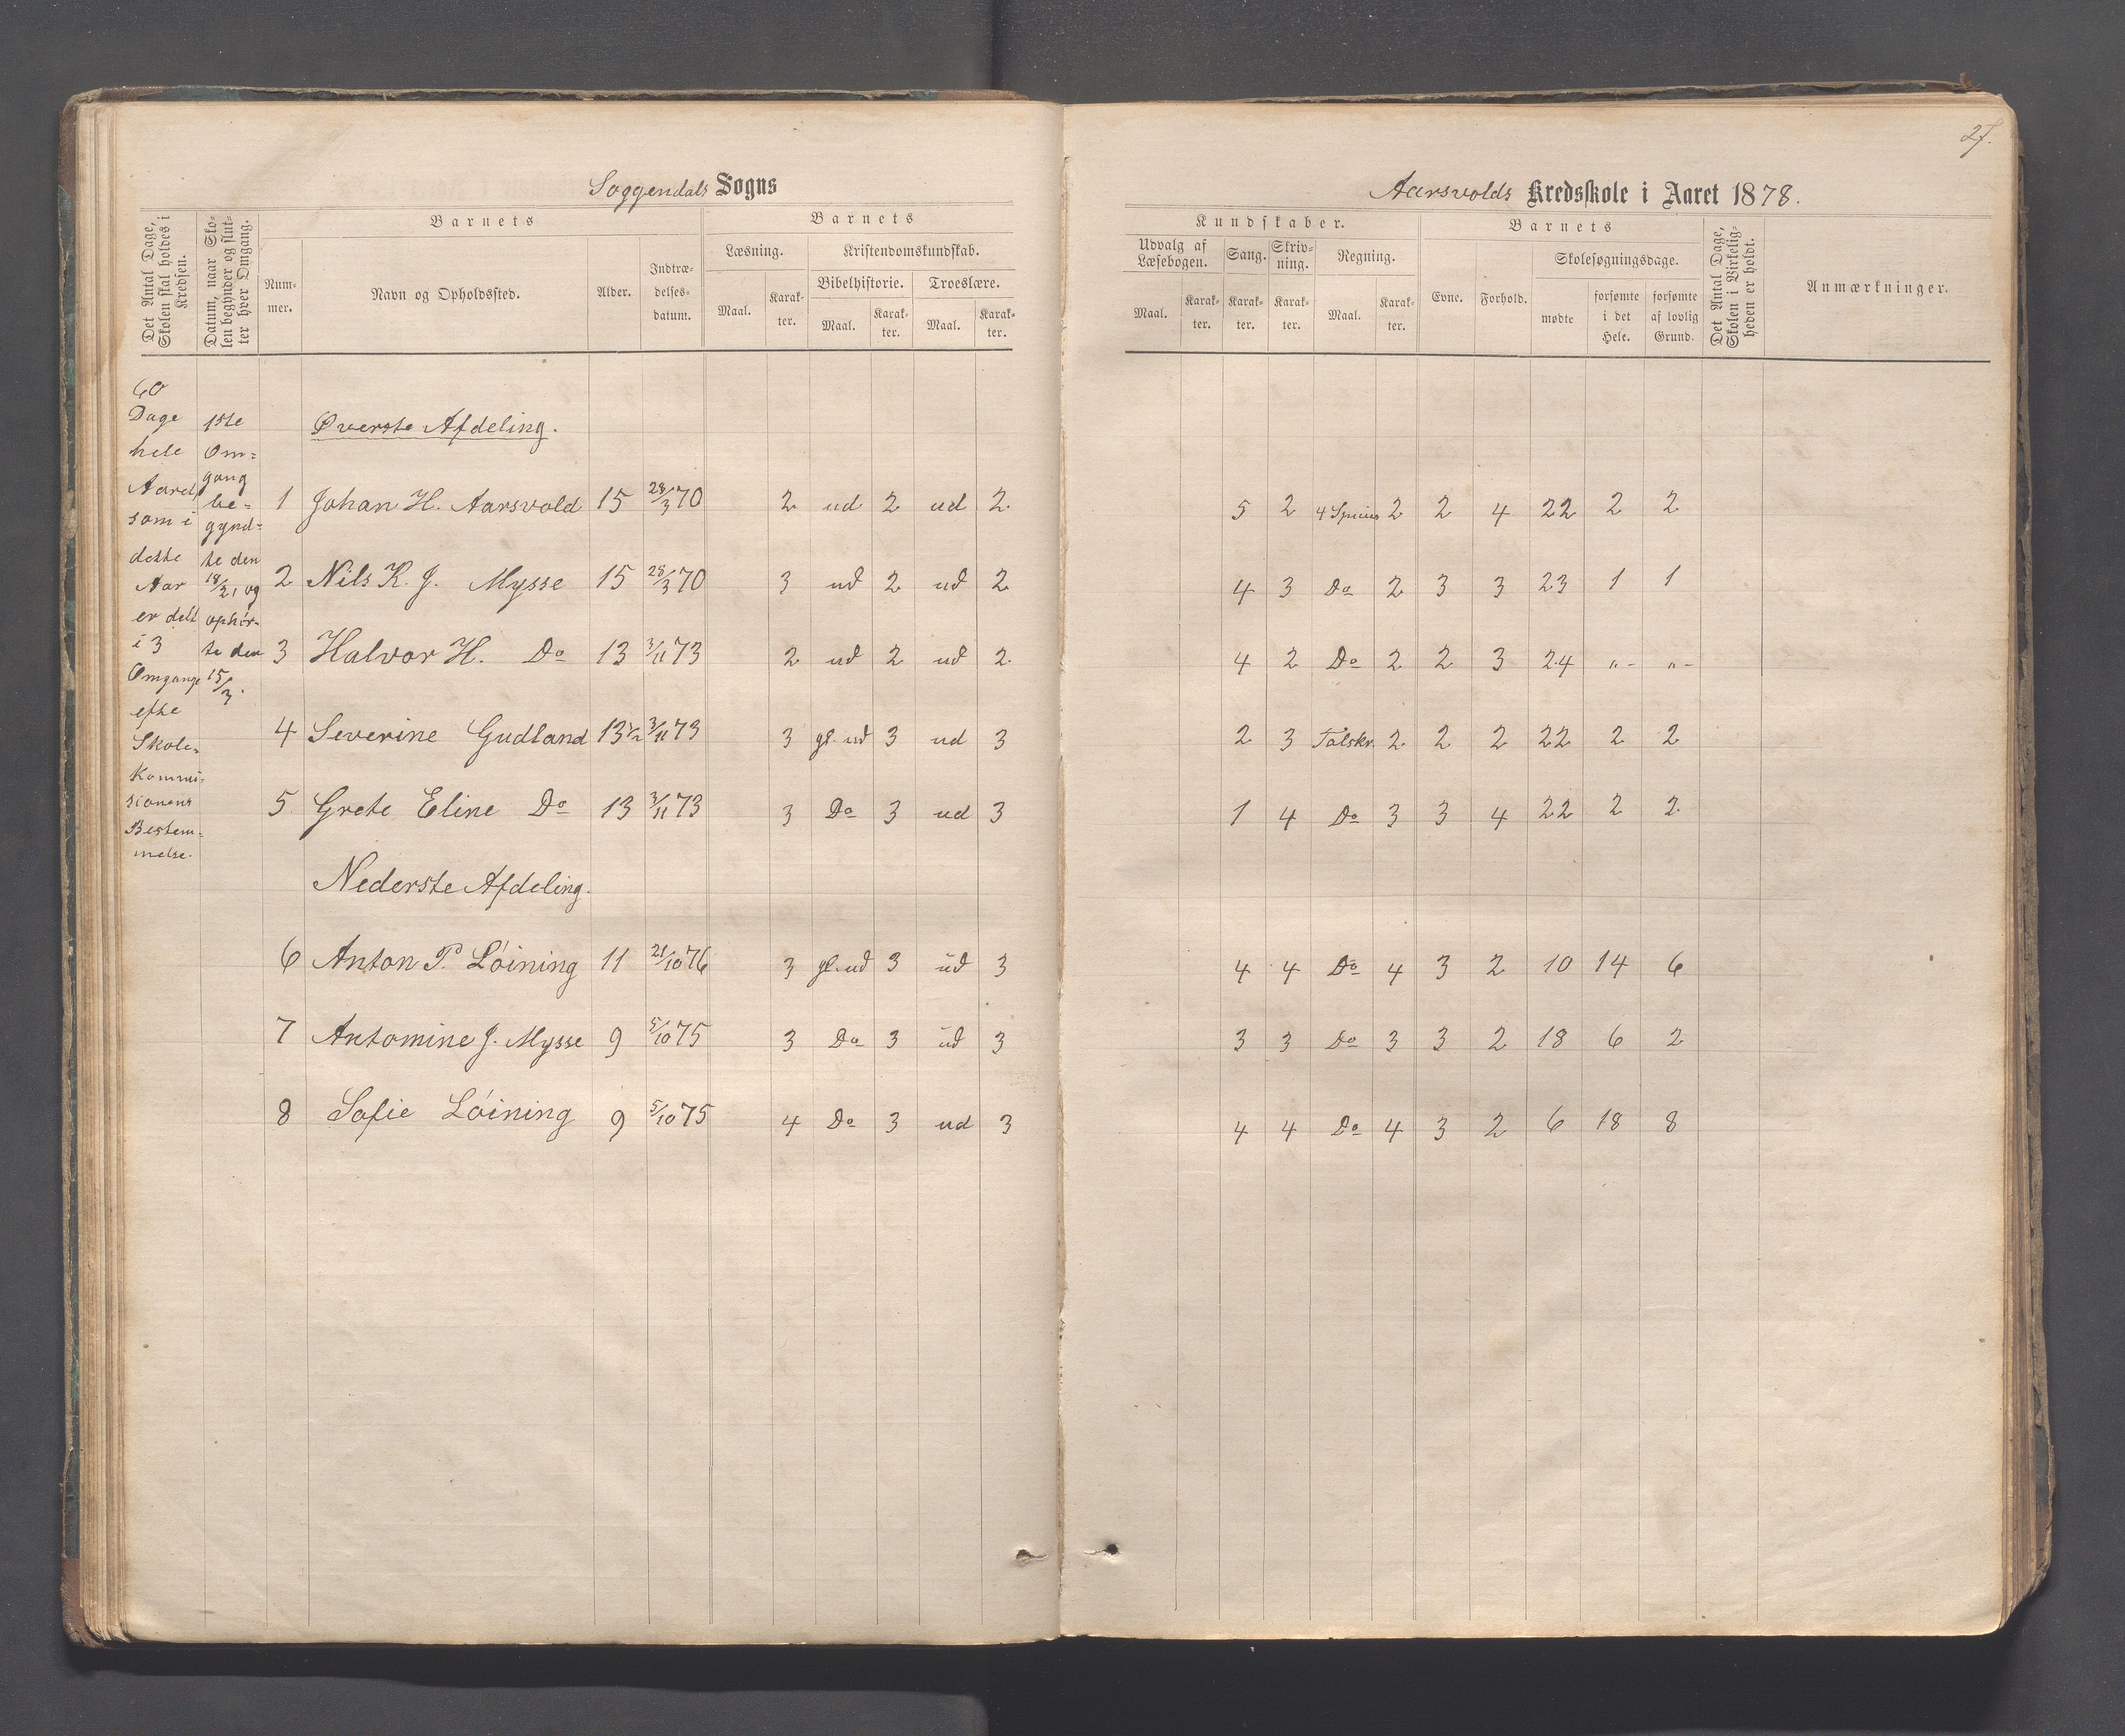 27.
Soggendals Sogns
Aarsvolds Kredsskole i Aaret 1878.
Det Antal Dage, Skolen skal holdes i Kredsen.
Datum, naar Skolen begynder og slutter hver Omgang.
Barnets
Nummer.
Navn og Opholdssted.
Alder.
Indtrædelsesdatum.
Barnets
Læsning.
Kristendomskundskab.
Bibelhistorie.
Troeslære.
Maal. Karakter. Maal. Karakter. Maal. Karakter.
Kundskaber.
Udvalg af Læsebogen.
Sang.
Skrivning.
Regning.
Maal. Karakter. Karakter. Karakter. Maal. Karakter.
Barnets
Evne. Forhold.
Skolesøgningsdage.
mødte
forsømte i det Hele.
forsømte af lovlig Grund.
Det Antal Dage, Skolen i Virkeligheden er holdt.
Anmærkninger.
60
Dage
hele
Aaret,
som i
dette
Aar
er delt
i 3
Omgange
efte
Skole-
Kommi-
sionens
Bestem-
melse.
1ste
Om=
gang
be=
gynd=
te den
18/2, og
ophør-
te den
15/3.
Øverste Afdeling.
1 Johan H. Aarsvold 15 28/3 70 2 ud 2 ud 2. 5 2 4 2 2 4 22 2 2
2 Nils K. J. Mysse 15 28/3 70 3 ud 2 ud 2 4 3 Do 2 3 3 23 1 1
3 Halvor H. Do 13 3/11 73 2 ud 2 ud 2. 4 2 Do 2 2 3 24 "- "-
4 Severine Gudland 13½ 3/11 73 3 gl. ud 3 ud 3 2 3 Talskr. 2 2 2 22 2 2
5 Grete Eline Do 13 3/11 73 3 Do 3 ud 3 1 4 Do 3 3 4 22 2 2
Nederste Afdeling.
6 Anton P. Löining 11 21/10 76 3 gl. ud 3 ud 3 4 4 Do 4 3 2 10 14 6
7 Antomine J. Mysse 9 5/10 75 3 Do 3 ud 3 3 3 Do 3 3 2 18 6 2
8 Sofie Löining 9 5/10 75 4 Do 3 ud 3 4 4 Do 4 3 2 6 18 8